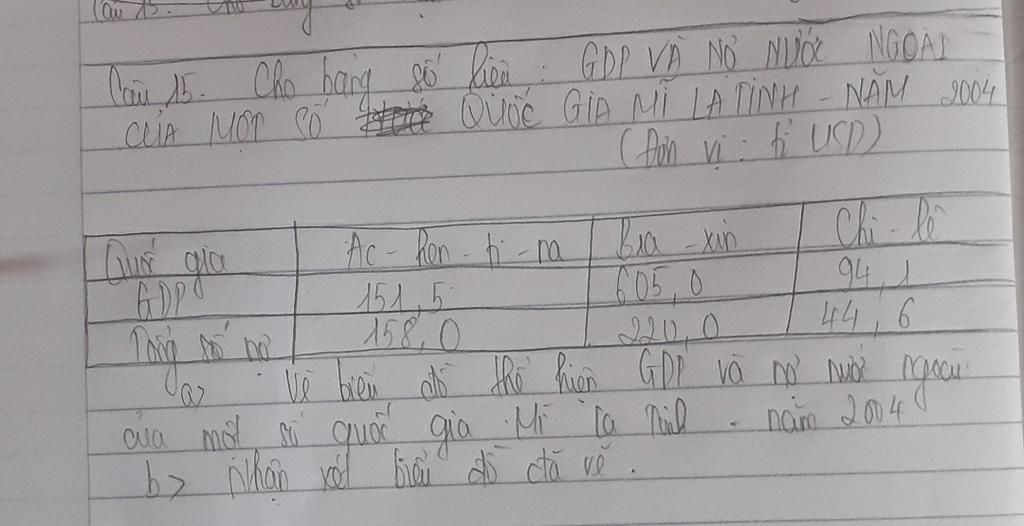 Câu 15. Cho bảng số
Câu 15. Cho bảng số liệu: GDP VÀ NỢ NƯỚC NGOÀI
CỦA MỘT SỐ QUỐC GIA MĨ LA TINH - NĂM 2004
(Đơn vị: tỉ USD)
Quốc gia Ac - hen - ti - na Bra - xin Chi - lê
GDP 151,5 605,0 94,1
Tổng số nợ 158,0 220,0 44,6
a> Vẽ biểu đồ thể hiện GDP và nợ nước ngoài
của một số quốc gia Mĩ la tinh - năm 2004
b> Nhận xét biểu đồ đã vẽ.